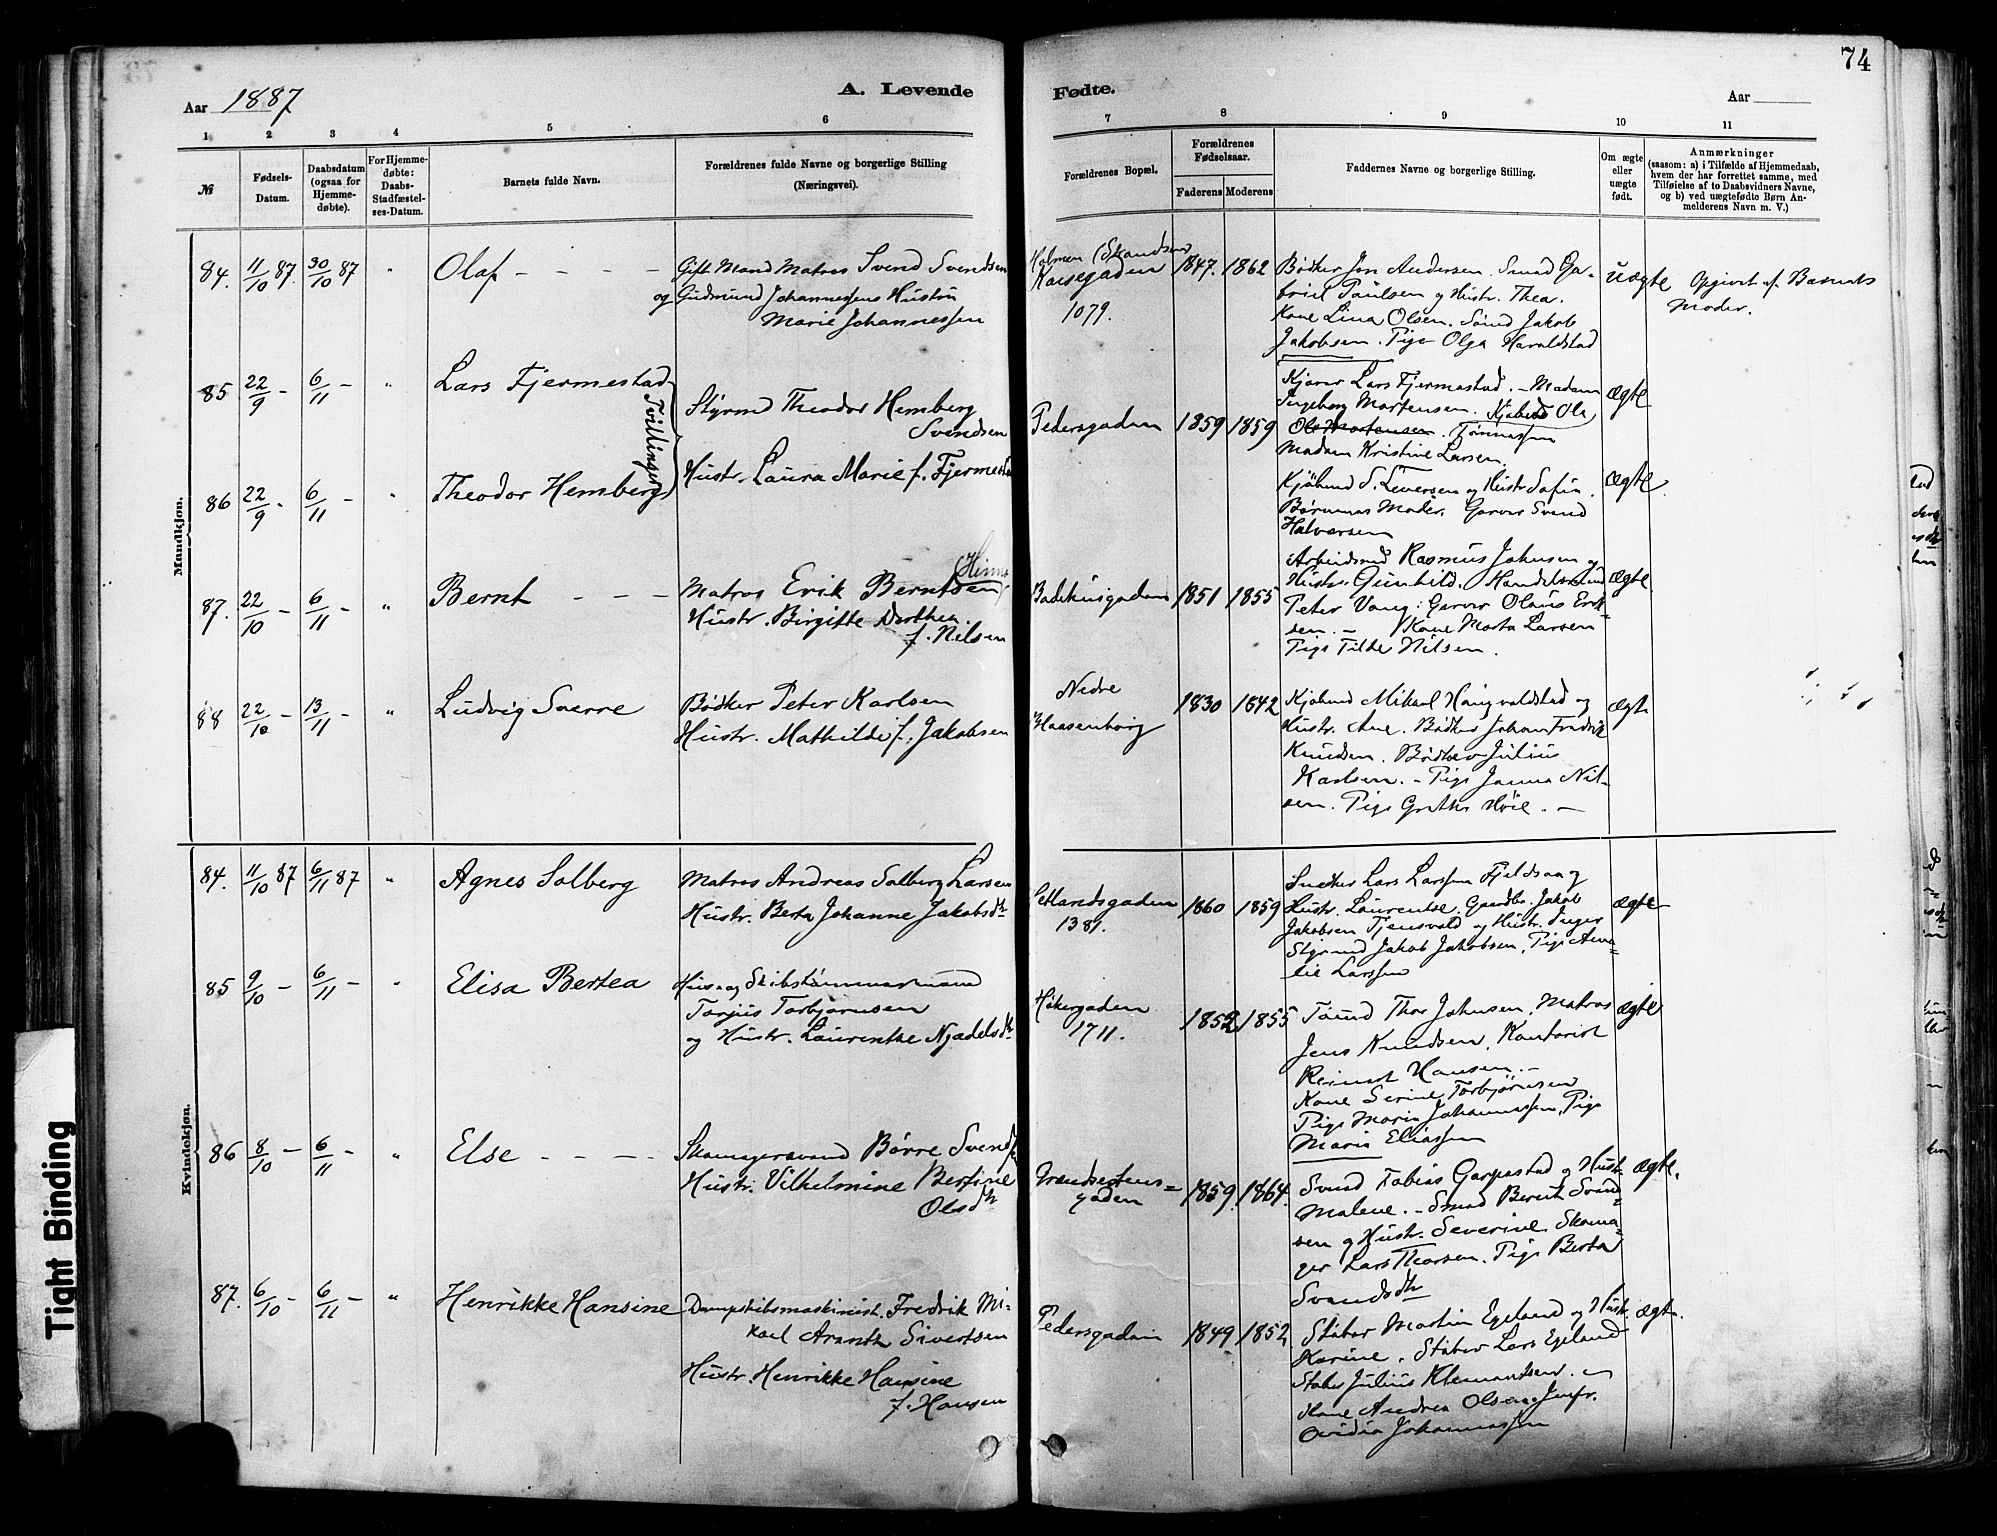 74
Aar 1887
A. Levende
Fødte.
Aar
1 2 3 4 5 6 7 8 9 10 11
№
Fødsels-
Datum.
Daabsdatum
(ogsaa for
Hjemme-
døbte).
For Hjemme-
døbte:
Daabs-
Stadfæstel-
ses-Datum.
Barnets fulde Navn.
Forældrenes fulde Navne og borgerlige Stilling
(Næringsvei).
Forældrenes Bopæl.
Forældrenes
Fødselsaar.
Faderens Moderens
Faddernes Navne og borgerlige Stilling.
Om ægte
eller
uægte
født.
Anmærkninger
(saasom: a) i Tilfælde af Hjemmedaab,
hvem der har forrettet samme, med
Tilføielse af to Daabsvidners Navne,
og b) ved uægtefødte Børn An-
melderens Navn m. V.)
Mandkjøn.
84. 11/10 87. 30/10 87 " Olaf - - - -
Gift Mand Matros Svend Svendsen
og Gudmund Johannessens Hustru
Marie Johannessen
Holmen (Skandsen)
Korsegaden
1079.
1847. 1862
Bødker Jon Andersen. Smed Ga-
briel Paulsen og Hustr. Thea.
Kone Lina Olsen. Sømd Jakob
Jakobsen. Pige Olga Haraldstad
uægte
Opgivet af Barnets
Moder.
85 22/9 - 6/11 - " Lars Fjermestad
Tvillinger
Styrmd Theodor Hemberg
Svendsen
Hustr. Laura Marie f. Fjermestad
Pedersgaden 1859 1859
Kjører Lars Fjermestad. - Madam
Ingeborg Mortensen. Kjøbmd Ole
Ole Mortensen. Tønnessen
Madam Kristine Larsen.
ægte
86 22/9 - 6/11 - " Theodor Hemberg
Kjøbmd S. Leversen og Hustr Sofie.
Børnenes Moder. Garver Svend
Halvorsen
ægte
87. 22/10 - 6/11 - " Bernt - - -
Matros Erik Berntsen
Hustr. Birgitte Dorthea.
f. Nilsen
Badehusgaden 1851 1855
Arbeidsmd Rasmus Johnsen og
Hustr. Gunhild. Handelsmd
Peter Vaug. Garver Olaus Erik-
sen. - Kone Marta Larsen
Pige Tilde Nilsen.
ægte
88 22/10 - 13/11 - " Ludvig Sverre
Bødker Peter Karlsen
Hustr. Mathilde f. Jakobsen
Nedre
Blaasenborg
1830 1842
Kjøbmd Mikael Haugvaldstad og
Hustr. Ane. Bødker Johan Fredrik
Knudsen. Bødker Julius
Karlsen. - Pige Janna Nil-
sen. Pige Grethe Høie. -
ægte
Kvindekjøn.
84. 11/10 87 6/11 87 " Agnes Solberg
Matros Andreas Solberg Larsen
Hustr. Berta Johanne Jakobsdtr
Jetlandsgaden
1381.
1860 1859
Snedker Lars Larssen Fjeldsaa og
Hustr. Laurentse. Gaardbr. Jakob
Jakobsen Tjensvold og Hustr. Inger
Styrmd Jakob Jakobsen. Pige Ama-
lie Larssen
ægte
85 9/10 - 6/11 - " Elisa Bertea
Hus og Skibstømmermand
Torjus Torbjørnsen
og Hustr. Laurentse Njædelsdtr
Høkergaden
1711.
1852 1855
Tømd Thor Johnsen, Matros
Jens Knudsen, Kontorist
Reinert Hansen. -
Kone Serine Torbjørnsen
Pige Marie Johannessen, Pige
Marie Eliassen
ægte
86 8/10 - 6/11 - " Else - - - -
Skomagersvend Børre Svendsen
Hustr. Vilhelmine Bertine
Olsdtr
Grændsestens-
gaden
1859. 1864.
Svend Tobias Garpestad og Hustr.
Malene. - Smed Berent Svend-
sen og Hustr. Severine. Skoma-
ger Lars Thorsen. Pige Berta
Svendsdtr
ægte.
87. 6/10 - 6/11 - " Henrikke Hansine
Dampskibsmaskinist. Fredrik Mi-
kael Arentz Sivertsen
Hustr. Henrikke Hansine
f. Hansen
Pedersgaden 1849 1852
Støber Martin Egeland og Hustr.
Karine. Støber Lars Egeland
Støber Julius Klemendsen. -
Kone Andrea Olsen. Jmfr.
Ovidia Johannessen
ægte.
Tight Binding